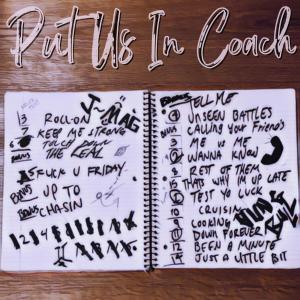 Put Us In Coach
J-MAG
3 ROLL-ON
7 KEEP ME STRONG
TOUCH DOWN
THE REAL
5 FUCK U FRIDAY
BONUS UP TO
BONUS CHASIN
BONUS TELL ME
4 UNSEEN BATTLES
BONUS CALLING YOUR FRIENDS
3 ME VS ME
2 WANNA KNOW
8 REST OF THEM
15 THATS WHY IM UP LATE
6 TEST YO LUCK
10 CRUISIN
9 COOKING
11 DOWN FOREVER
12 BEEN A MINUTE
14 JUST A LITTLE BIT